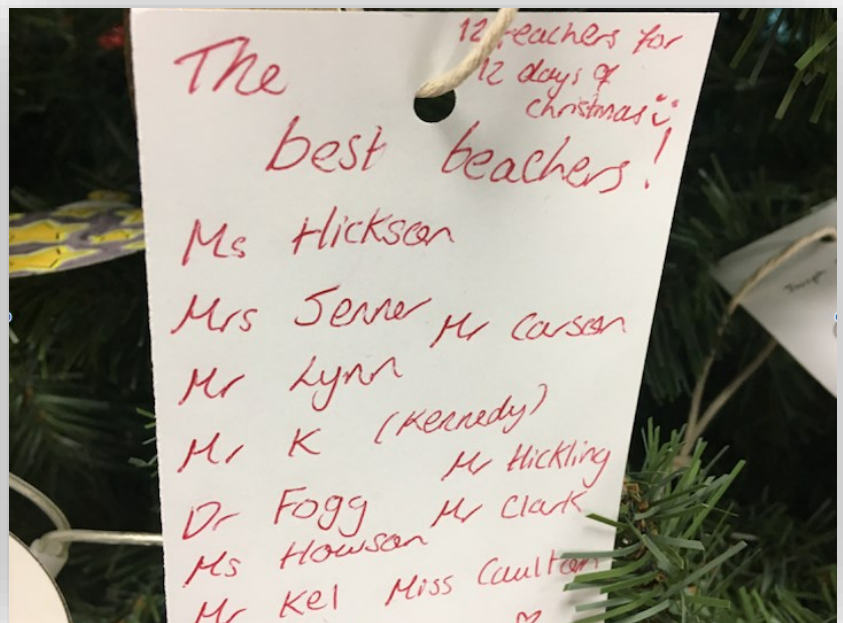 12 teachers for
12 days of
christmas :)
The
best teachers!
Ms Hickson
Mrs Jenner Mr Carson
Mr Lynn
Mr K (Kennedy)
Mr Hickling
Dr Fogg Mr Clark
Ms Howson
Mr Kel Miss Caulton